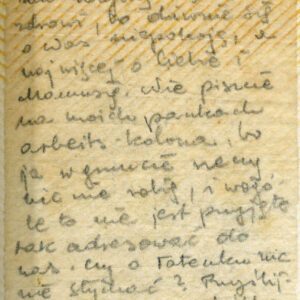 zdrowi, bo dziwnie się
o was niepokoję, a
najwięcej o Ciebie i
Mamusię. Nie piszcie
na moich paczkach
arbeits-kolona, bo
ja w gruncie rzeczy
nic nie robię, i wogó-
le to nie jest przyjęte
tak adresować do
nas. Czy o Tatenku nic
nie słychać? Przyślij-